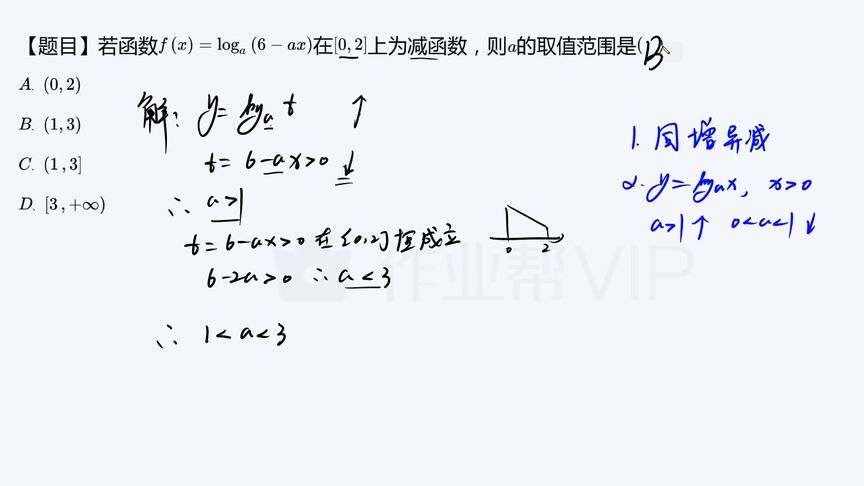 【题目】若函数f(x)=logₐ(6-ax)在[0,2]上为减函数，则a的取值范围是( B
A. (0,2)
B. (1,3)
C. (1,3]
D. [3,+∞)
解: y=logₐt ↑
t=6-ax>0 ↓
∴ a>1
t=6-ax>0 在[0,2]恒成立
0 2
6-2a>0 ∴a<3
∴ 1<a<3
1. 同增异减
2. y=logₐx, x>0
a>1↑ 0<a<1↓
作业帮VIP